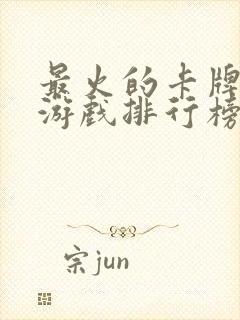 最火的卡牌
游戏排行榜
宗jun